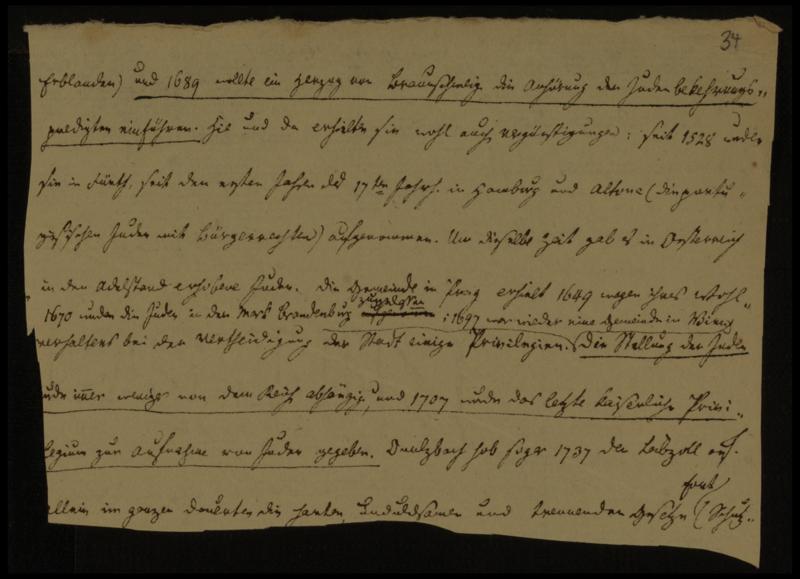 34
Erblanden) und 1689 wollte ein Herzog von Braunschweig die Anhörung der Juden bekehrungs-
predigten einführen. Hie und da erhielten sie wohl auch vergünstigungen: seit 1528 wurden
sie in Fürth, seit den ersten Jahren des 17ten Jahrh. in Hamburg und Altona (die portu-
giesischen Juden mit Bürgerrechten) aufgenommen. Um dieselbe Zeit gab es in Oesterreich
in den Adelstand erhobene Juden. Die Gemeinde in Prag erhielt 1649 wegen ihres Wohl-
1670 wurden die Juden in der Mark Brandenburg zugelassen; 1697 war wieder eine Gemeinde in Wien
verhaltens bei der Vertheidigung der Stadt einige Privilegien. (Die Stellung der Juden
wurde immer weniger von dem Reich abhängig, und 1707 wurde das letzte kaiserliche Privi-
legium zur Aufnahme von Juden gegeben. Sulzbach hob sogar 1737 den Leibzoll auf.
allein im ganzen dauerten die harten, unduldsamen und trennenden Gesetze fort (Schutz-